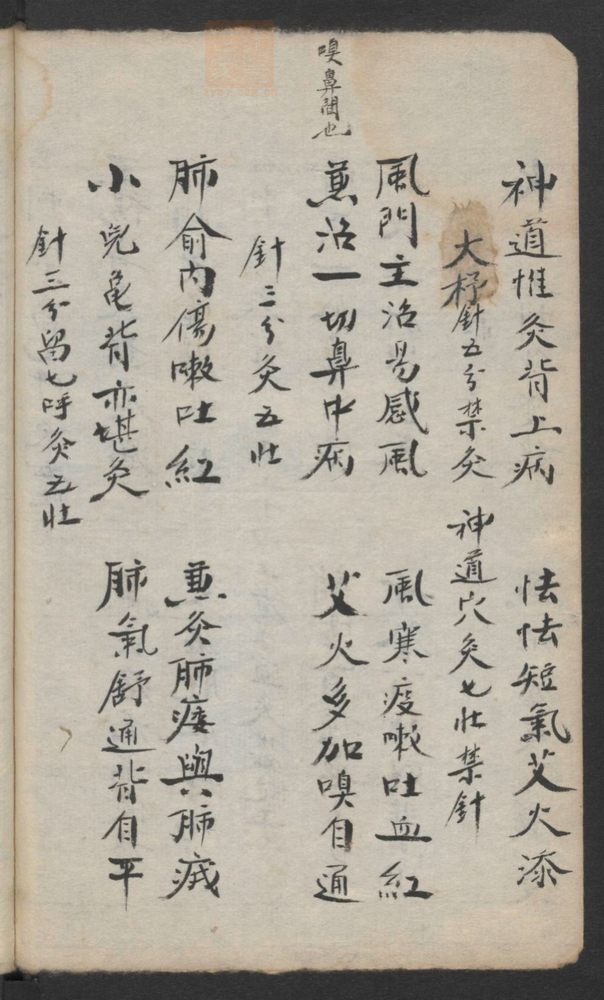 神道惟灸背上病 怯怯短氣艾火添
大杼針五分禁灸 神道穴灸七壯禁針
風門主治易感風 風寒痰嗽吐血紅
兼治一切鼻中病 艾火多加嗅自通
嗅鼻聞也
針三分灸五壯
肺俞內傷嗽吐紅 兼灸肺痿與肺
小兒龟背亦堪灸 肺氣舒通背自平
針三分留七呼灸五壯